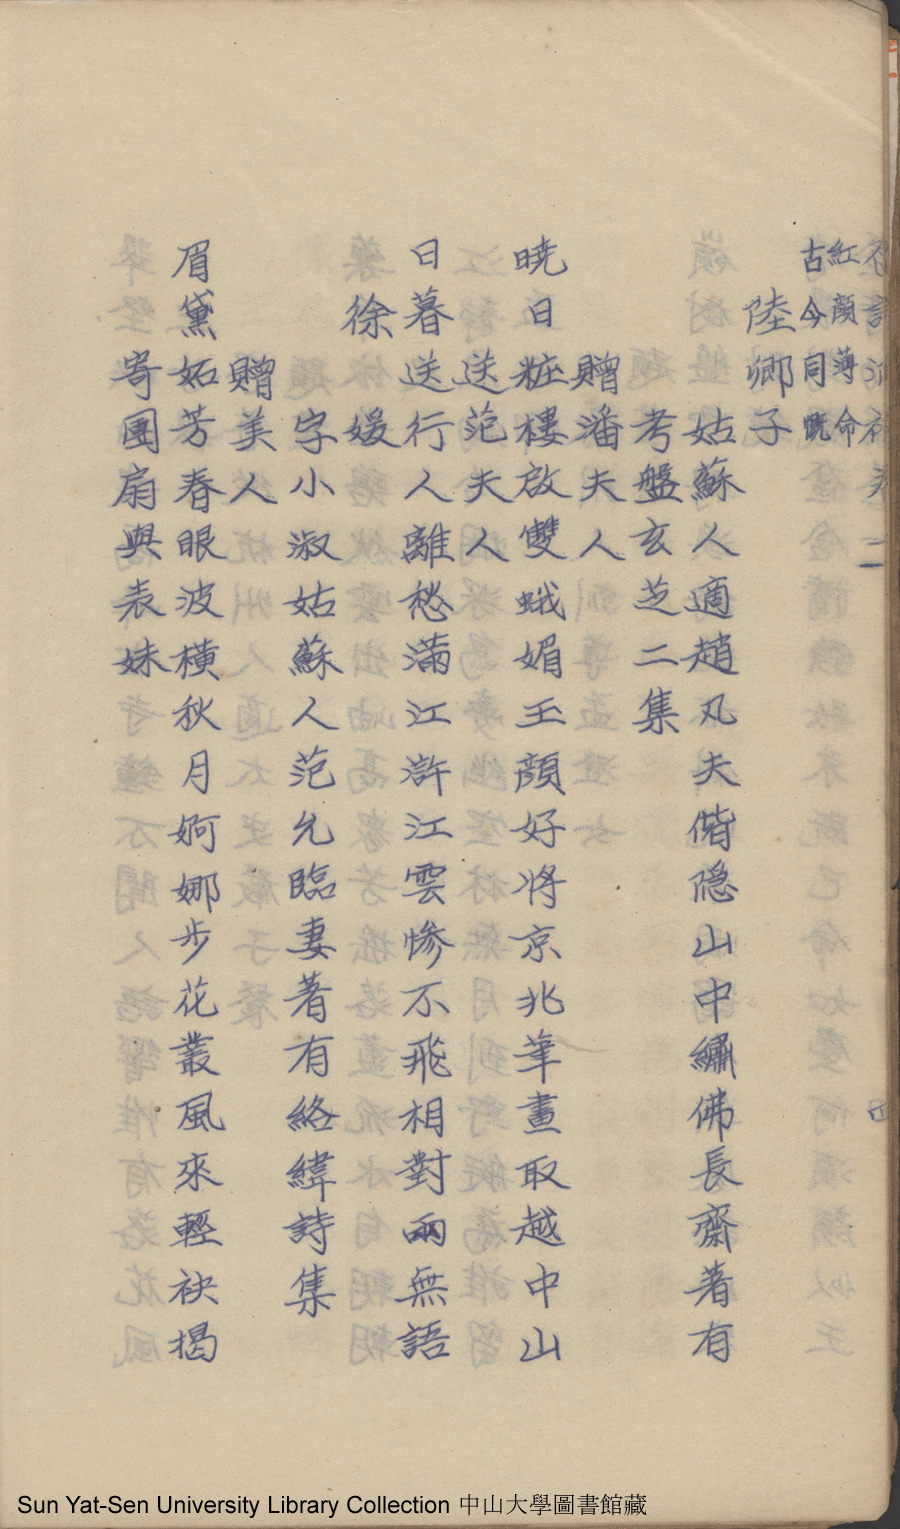 紅顔薄命
古今同慨
陸卿子
姑蘇人適趙凡夫偕隐山中繡佛長齋著有
考盤玄芝二集
贈潘夫人
暁日粧樓啟雙蛾媚玉顔好将京兆筆畫取越中山
送范夫人
日暮送行人離愁滿江滸江雲慘不飛相對兩無語
徐媛
字小淑姑蘇人范允臨妻著有絡緯詩集
贈美人
眉黛妬芳春眼波橫秋月婀娜步花叢風來輕袂揭
寄團扇與表妹
Sun Yat-Sen University Library Collection 中山大學圖書館藏